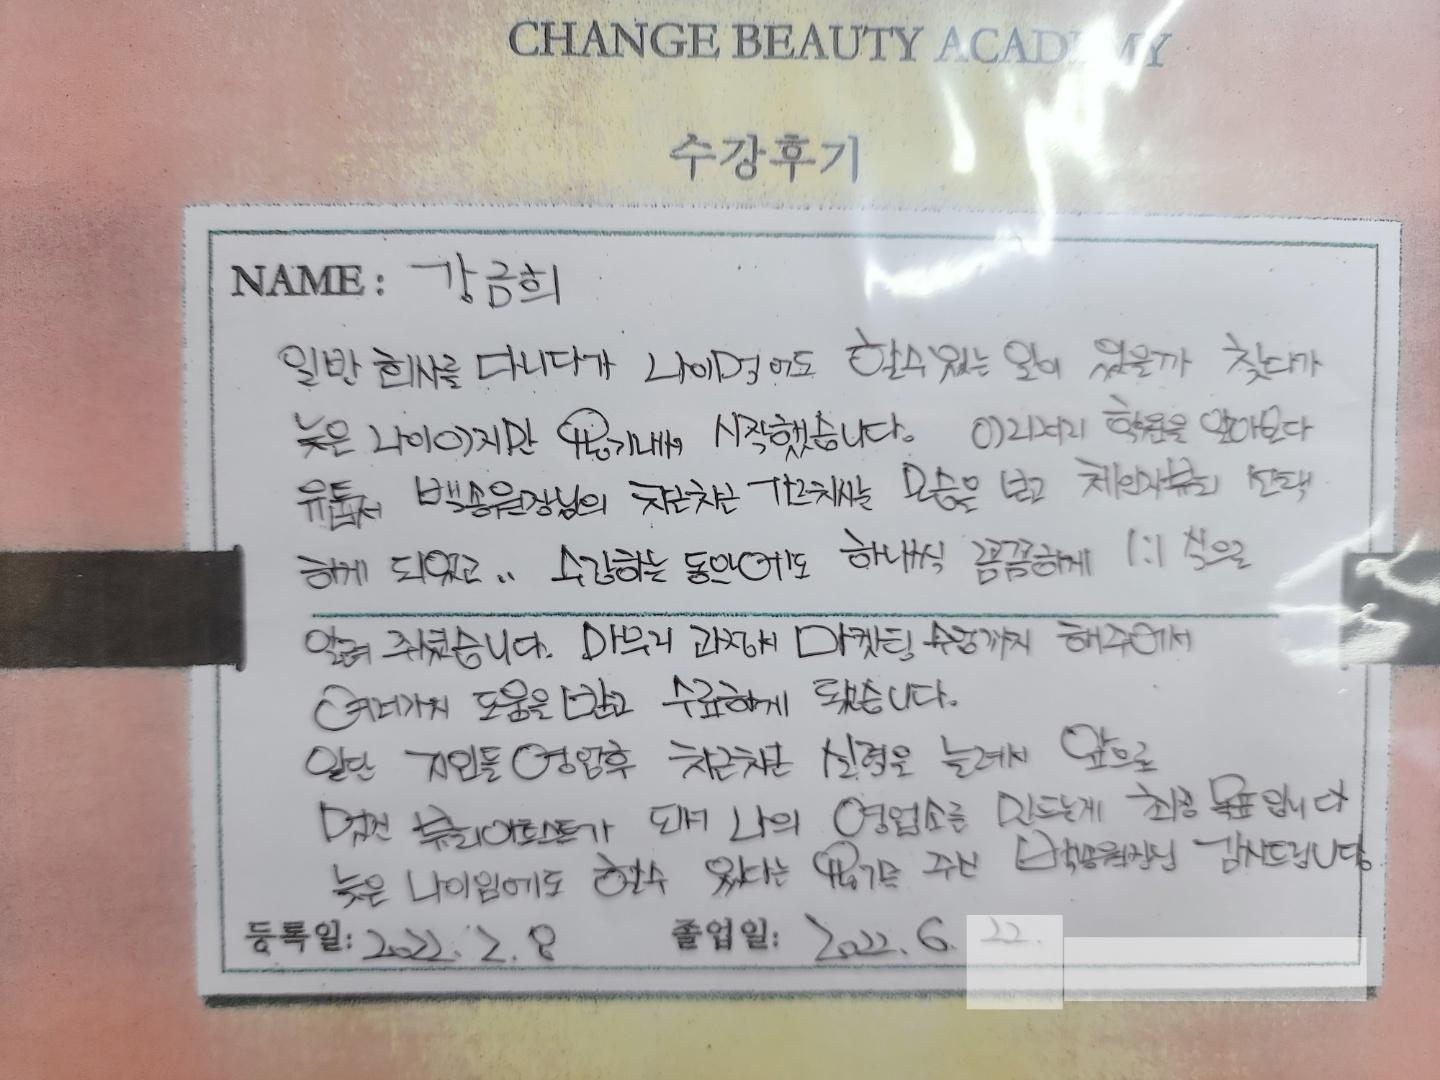 CHANGE BEAUTY ACADEMY
수강후기
NAME: 강금희
일반 회사를 다니다가 나이먹어도 할수있는 일이 있을까 찾다가
늦은 나이이지만 용기내어 시작했습니다. 이리저리 학원을 알아보다
유튭서 백송원장님의 차근차근 가르치시는 모습을 보고 체인지뷰티 선택
하게 되었고.. 수강하는 동안에도 하나씩 꼼꼼하게 1:1 식으로
알려 주셨습니다. 마무리 과정서 마켓팅 수업까지 해주어서
여러가지 도움을 받고 수료하게 됐습니다.
일단 지인들 영업후 차근차근 실력을 늘려서 앞으로
멋진 뷰티아티스트가 되서 나의 영업소를 만드는게 최종 목표입니다
늦은 나이임에도 할수 있다는 용기를 주신 백송원장님 감사드립니다.
등록일: 2022. 2. 8 졸업일: 2022. 6. 22.